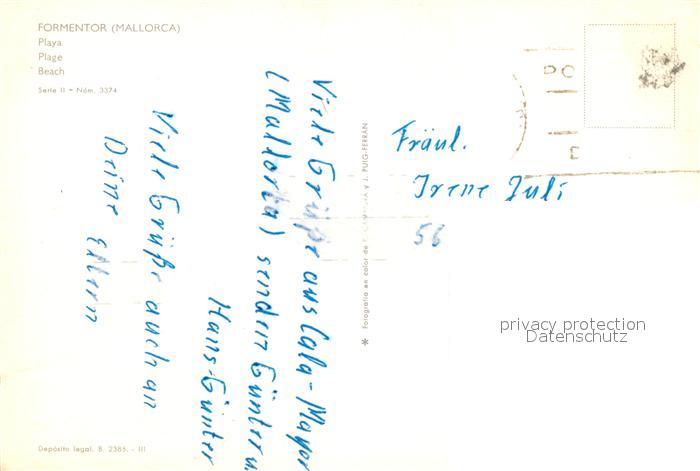 FORMENTOR (MALLORCA)
Playa
Plage
Beach
Serie II - Núm. 3374
Viele Grüße aus Cala-Mayor
(Mallorka) senden Günter u
Hans-Günter
Viele Grüße auch an
Deine Eltern
Fotografía en color de
y J. PUIG-FERRÁN
Fräul.
Irene Juli
56
PO
privacy protection
Datenschutz
Depósito legal. B. 2385. - III